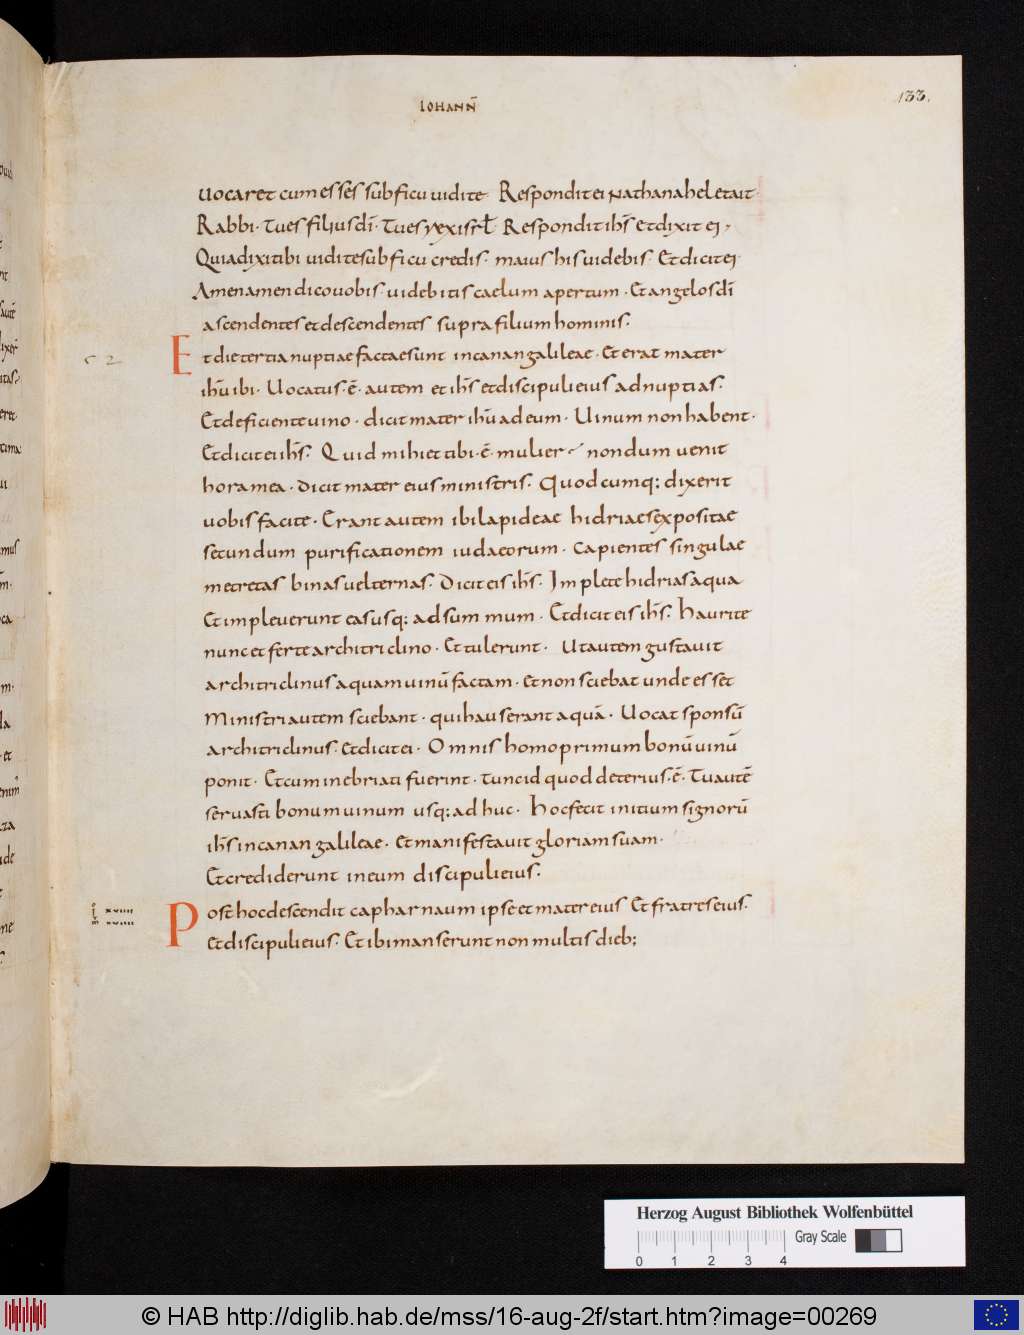 IOHANN̄
133.
uocaret cum esses sub ficu uidi te· Respondit ei Nathanahel et ait·
Rabbi· Tu es filius dī· Tu es rex isrł· Respondit ihs̄ Et dixit ei·
Quia dixi tibi uidi te sub ficu credis· maius his uidebis· Et dicit ei·
Amen amen dico uobis· uidebitis caelum apertum· Et angelos dī
ascendentes et descendentes supra filium hominis·
Et die tertia nuptiae factae sunt in canan galileae· Et erat mater
c 2
ihū ibi· Uocatus·ē· autem et ihs̄ et discipuli eius ad nuptias·
Et deficiente uino· dicit mater ihū ad eum· Uinum non habent·
Et dicit ei ihs̄· Quid mihi et tibi·ē· mulier nondum uenit
hora mea· Dicit mater eius ministris· Quodcumq; dixerit
uobis facite· Erant autem ibi lapideae hidriae sex positae
secundum purificationem iudaeorum· Capientes singulae
metretas binas uel ternas· Dicit eis ihs̄· Implete hidrias aqua
Et impleuerunt eas usq; ad summum· Et dicit eis ihs̄· Haurite
nunc et ferte architriclino· Et tulerunt· Ut autem gustauit
architriclinus aquam uinū factam· Et non sciebat unde esset
Ministri autem sciebant· qui hauserant aquā· Uocat sponsū
architriclinus· Et dicit ei· Omnis homo primum bonū uinū
ponit· Et cum inebriati fuerint· tunc id quod deterius·ē· Tu autē
seruasti bonum uinum usq; ad huc· Hoc fecit initium signorū
ihs̄ in canan galileae· Et manifestauit gloriam suam·
Et crediderunt in eum discipuli eius·
Post hoc descendit capharnaum ipse et mater eius Et fratres eius·
Et discipuli eius· Et ibi manserunt non multis dieb;
Herzog August Bibliothek Wolfenbüttel
Gray Scale
0 1 2 3 4
© HAB http://diglib.hab.de/mss/16-aug-2f/start.htm?image=00269